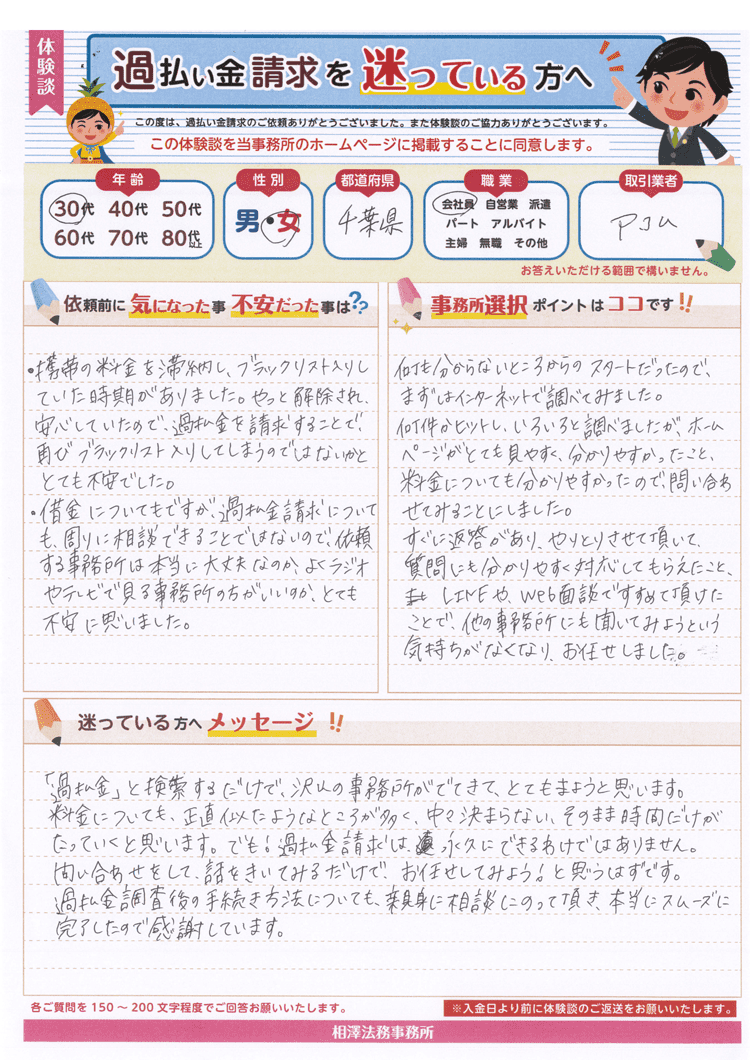 体験談
過払い金請求を迷っている方へ
この度は、過払い金請求のご依頼ありがとうございました。また体験談のご協力ありがとうございます。
この体験談を当事務所のホームページに掲載することに同意します。
年齢
30代 40代 50代
60代 70代 80代以上
性別
男・女
都道府県
千葉県
職業
会社員 自営業 派遣
パート アルバイト
主婦 無職 その他
取引業者
アコム
お答えいただける範囲で構いません。
依頼前に気になった事 不安だった事は??
・携帯の料金を滞納し、ブラックリスト入りし
ていた時期がありました。やっと解除され、
安心していたので、過払金を請求することで、
再びブラックリスト入りしてしまうのではないかと
とても不安でした。
・借金についてもですが、過払金請求について
も、周りに相談できることではないので、依頼
する事務所は本当に大丈夫なのか、よくラジオ
やテレビで見る事務所の方がいいのか、とても
不安に思いました。
事務所選択ポイントはココです!!
何も分からないところからのスタートだったので、
まずはインターネットで調べてみました。
何件かヒットし、いろいろと調べましたが、ホーム
ページがとても見やすく、分かりやすかったこと、
料金についても分かりやすかったので、問い合わ
せてみることにしました。
すぐに返答があり、やりとりさせて頂いて、
質問にも分かりやすく対応してもらえたこと、
LINEや、web面談ですすめて頂けた
ことで、他の事務所にも聞いてみようという
気持ちがなくなり、お任せしました。
迷っている方へメッセージ!!
「過払金」と検索するだけで、沢山の事務所がでてきて、とてもまようと思います。
料金についても、正直似たようなところが多く、中々決まらない、そのまま時間だけが
たっていくと思います。でも!過払金請求は、永久にできるわけではありません。
問い合わせをして、話をきいてみるだけで、お任せしてみよう!と思うはずです。
過払金調査後の手続き方法についても、親身に相談にのって頂き、本当にスムーズに
完了したので感謝しています。
各ご質問を150～200文字程度でご回答お願いいたします。
※入金日より前に体験談のご返送をお願いいたします。
相澤法務事務所